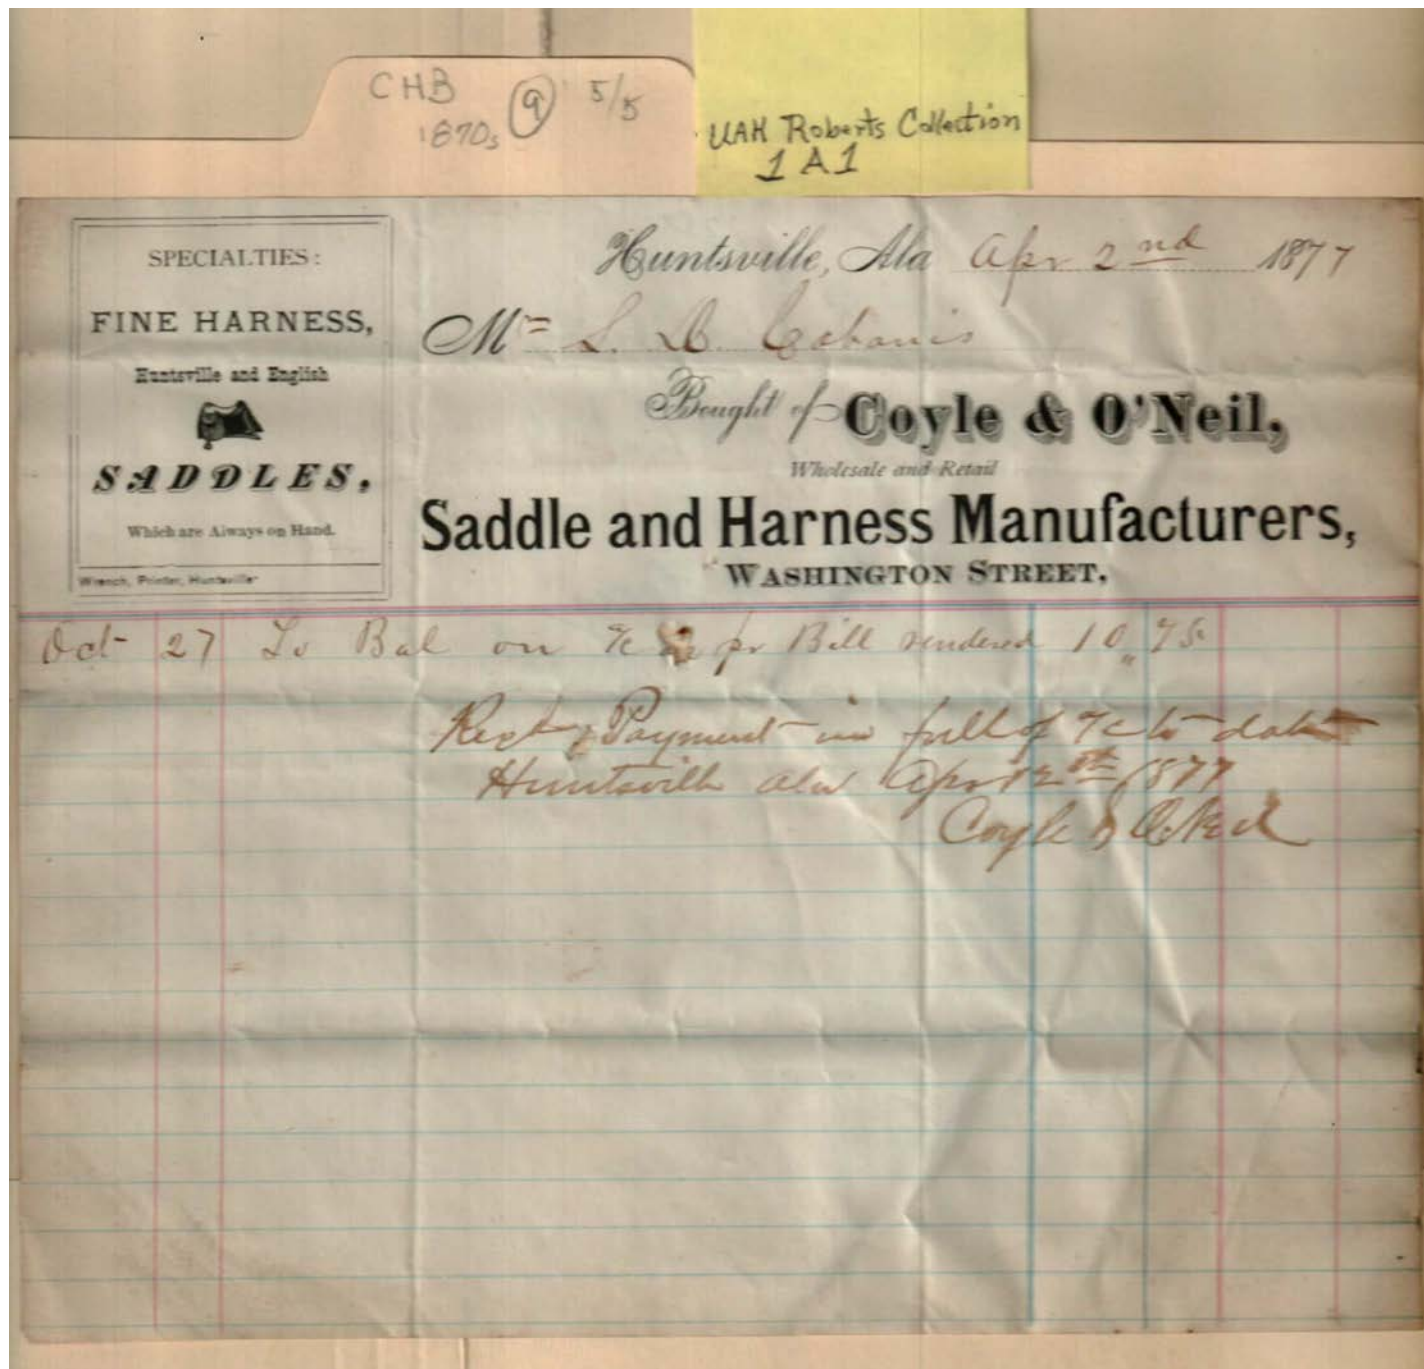 CHB 9 5/5
1870s
UAH Roberts Collection
1 A 1
SPECIALTIES:
FINE HARNESS,
Huntsville and English
SADDLES,
Which are Always on Hand.
Wrench, Printer, Huntsville
Huntsville, Ala Apr 2nd 1877
Mr S. D. Cabanis
Bought of Coyle & O'Neil,
Wholesale and Retail
Saddle and Harness Manufacturers,
WASHINGTON STREET,
Oct 27 To Bal on a/c pr Bill rendered 10 75
Payment in full of a/c to date
Huntsville ala Apr 12th 1877
Coyle & O'Neil